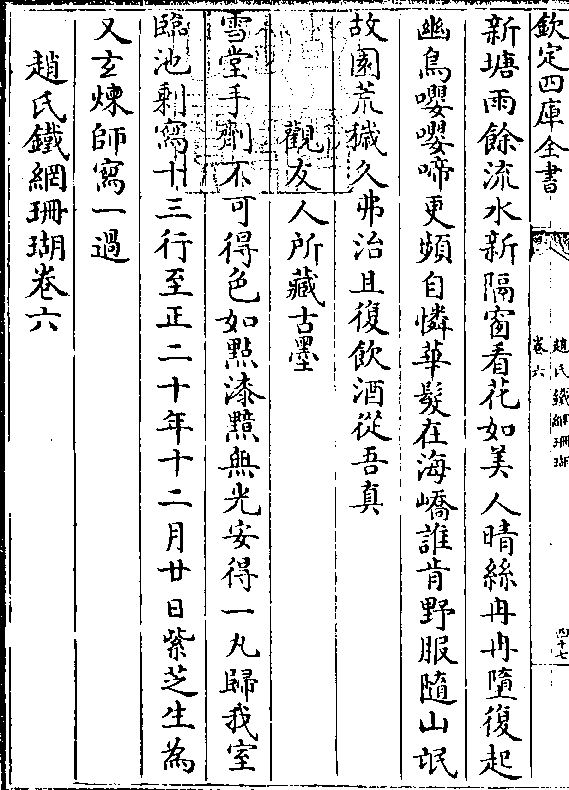 欽定四庫全書
趙氏鐵網珊瑚
卷六
四十七
新塘雨餘流水新隔窗看花如美人晴絲冉冉墮復起
幽鳥嚶嚶啼更頻自憐華髮在海嶠誰肯野服隨山氓
故園荒穢久弗治且復飲酒從吾真
觀友人所藏古墨
雪堂手劑不可得色如點漆黯無光安得一丸歸我室
臨池剩寫十三行至正二十年十二月廿日紫芝生為
又玄煉師寫一過
趙氏鐵網珊瑚卷六